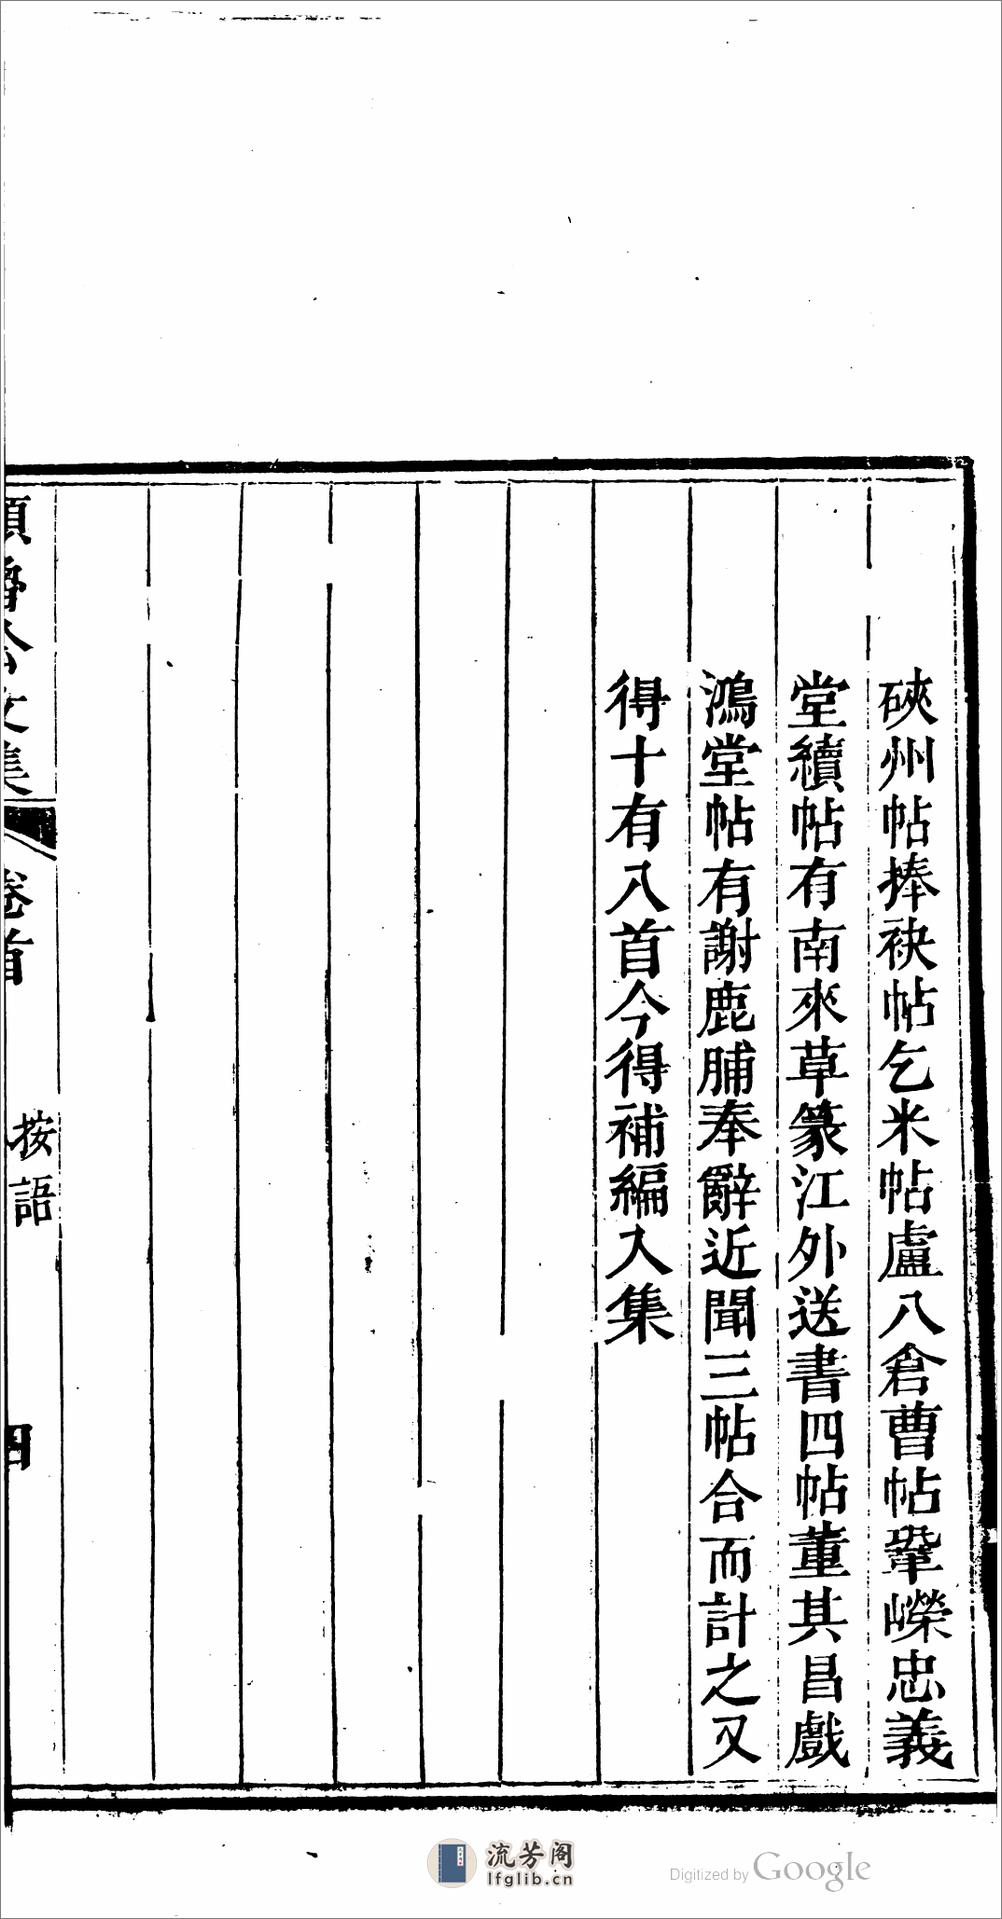 硤州帖捧袂帖乞米帖盧八倉曹帖鞏嶸忠義
堂續帖有南來草篆江外送書四帖董其昌戲
鴻堂帖有謝鹿脯奉辭近聞三帖合而計之又
得十有八首今得補編入集
顏魯公文集
卷首
按語
四
流芳阁
lfglib.cn
Digitized by Google